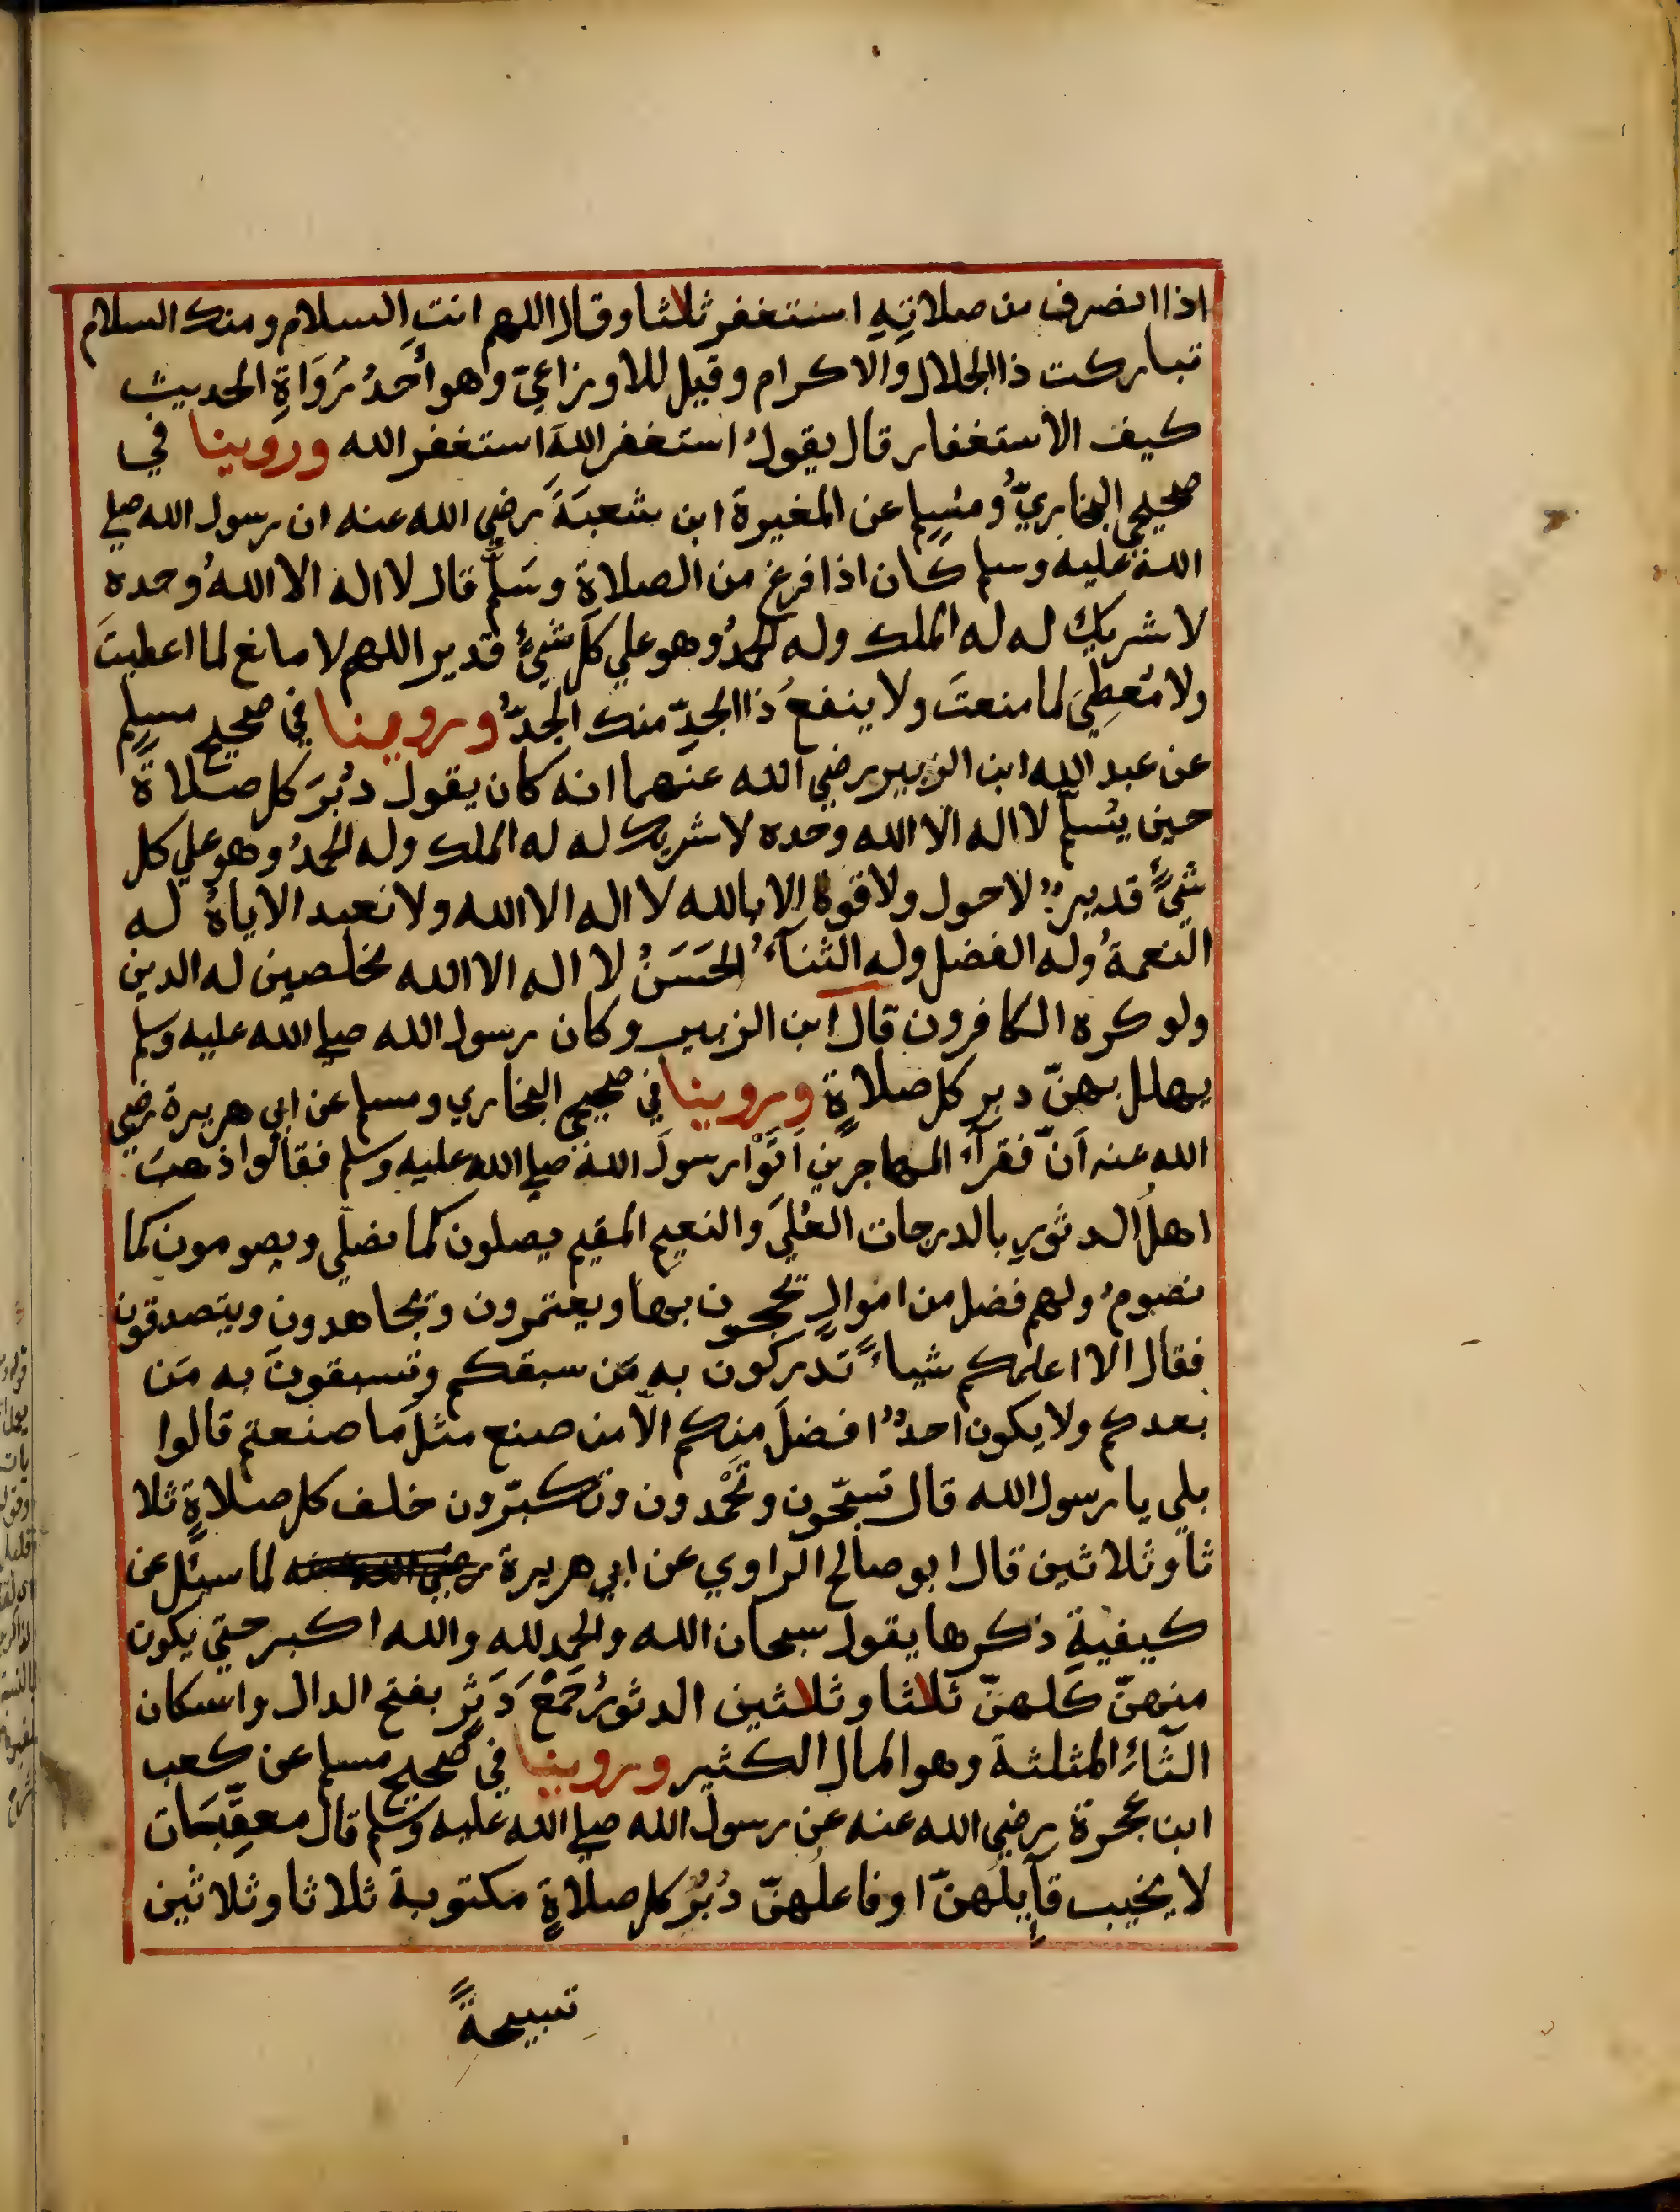 اذا انصرف من صلاتِهِ استغفر ثلاثا وقال اللهم انت السلام ومنك السلام
تباركت ذا الجلال والاكرام وقيل للاوزاعيّ وهو أَحَدُ رُوَاةِ الحديث
كيف الاستغفار قال يقولُ استغفر اللهَ استغفر الله وروينا في
صحيحي البخاريّ ومُسلِمٍ عن المغيرة ابن شعبَةَ رضي الله عنه ان رسول الله صلي
اللهُ عليه وسلم كان اذا فرغ من الصلاةِ وسَلَّمَ قال لا اله الا اللهُ وحده
لا شريكَ له له الملك وله الحمدُ وهو علي كل شيءٍ قدير اللهم لا مانع لما اعطيتَ
ولا مُعطِيَ لما منعتَ ولا ينفعُ ذا الجدِّ منك الجدُّ وروينا في صحيح مسلِمٍ
عن عبد الله ابن الزبير رضي الله عنهما انه كان يقول دُبُرَ كل صلاةٍ
حين يُسلّم لا اله الا الله وحده لا شريك له له الملك وله الحمدُ وهو علي كل
شيءٍ قديرٌ لا حول ولا قوة الا بالله لا اله الا الله ولا نعبد الا اياهُ له
النعمةُ وله الفضل وله الثنآءُ الحَسَنُ لا اله الا الله مخلصين له الدين
ولو كره الكافرون قال ابن الزبير وكان رسول الله صلي الله عليه وسلم
يهلل بهنّ دبر كل صلاةٍ وروينا في صحيحي البخاري ومسلم عن ابي هريرة رضي
الله عنه اَنّ فقرآءَ المهاجرين اَتَوْا رسولَ اللهِ صلي الله عليه وسلم فقالوا ذهبَ
اهلُ الدثورِ بالدرجات العُلَي والنعيمِ المقيم يصلون كما نصلّي ويصومون كما
نصومُ ولهم فضل من اموالٍ يحجون بها ويعتمرون ويجاهدون ويتصدقون
فقال الا اعلمكم شياءً تدركون به مَن سبقكم وتسبقونَ به مَن
بعدكم ولا يكون احدٌ افضلَ منكم الّا من صنع مثلَ ما صنعتم قالوا
بلي يا رسول الله قال تسبّحون وتَحْمدون وتكبّرون خلف كل صلاةٍ ثلا
ثاً وثلاثين قال ابو صالح الراوي عن ابي هريرة رضي الله عنه لما سئل عن
كيفيةِ ذكرها يقول سبحان الله والحمد لله والله اكبر حتي يكون
منهنّ كلهنّ ثلاثا وثلاثين الدثورُ جَمْعُ دَثْرٍ بفتح الدال واسكان
الثآءِ المثلثة وهو المال الكثير وروينا في صحيح مسلم عن كعب
ابن عجرة رضي الله عنه عن رسول الله صلي الله عليه وسلم قال معقِّبَات
لا يخيب قآيلُهنّ او فاعلُهنّ دُبُرَ كل صلاةٍ مكتوبة ثلاثا وثلاثين
تسبيحةً